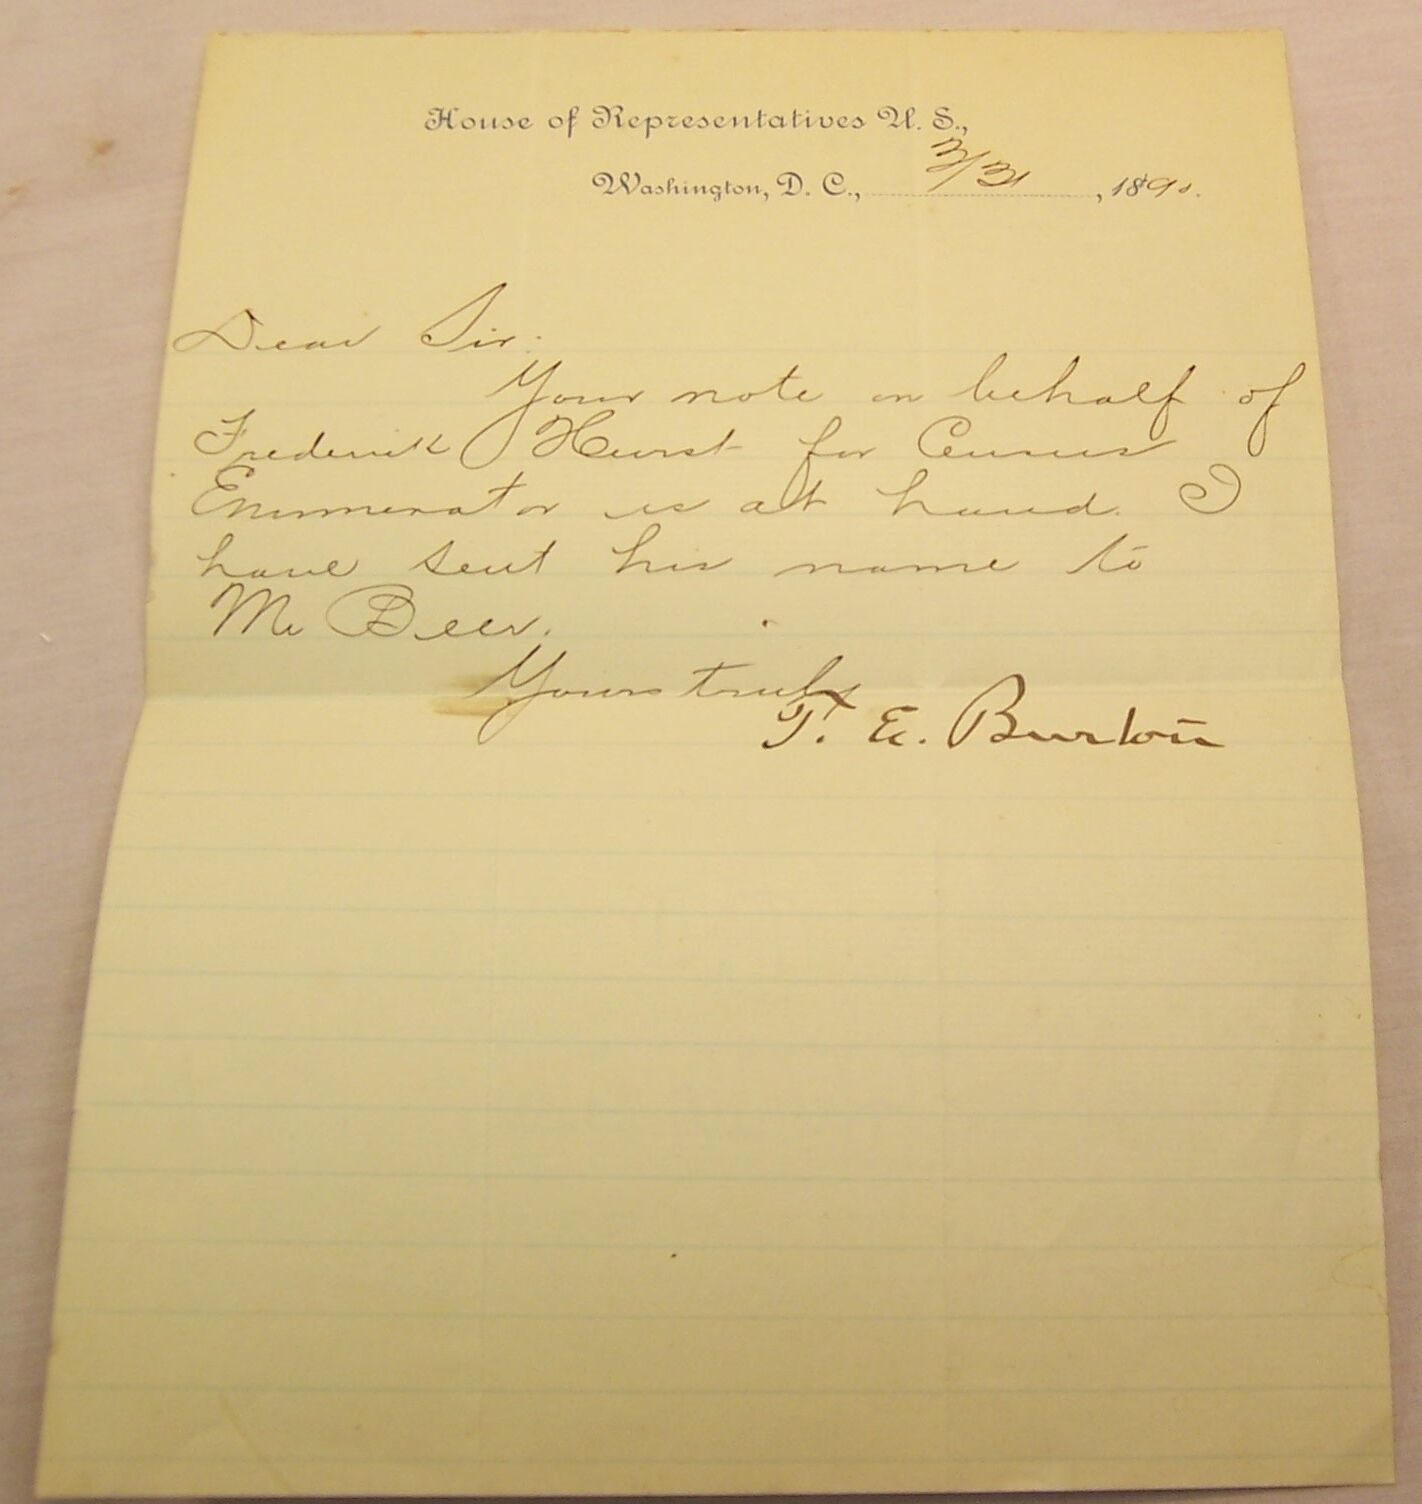 House of Representatives U. S.,
Washington, D. C., , 1890.
Dear Sir.
Your note on behalf of
Frederick Hurst for Census
Enumerator is at hand. I
have sent his name to
Mr Beer.
Yours truly
T. E. Burton